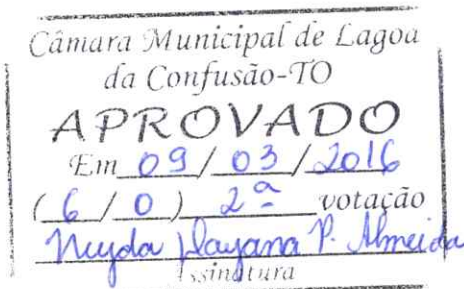 Câmara Municipal de Lagoa
da Confusão-TO
APROVADO
Em 09/03/2016
(6/0) 2ª votação
P. Almeida
ssinatura